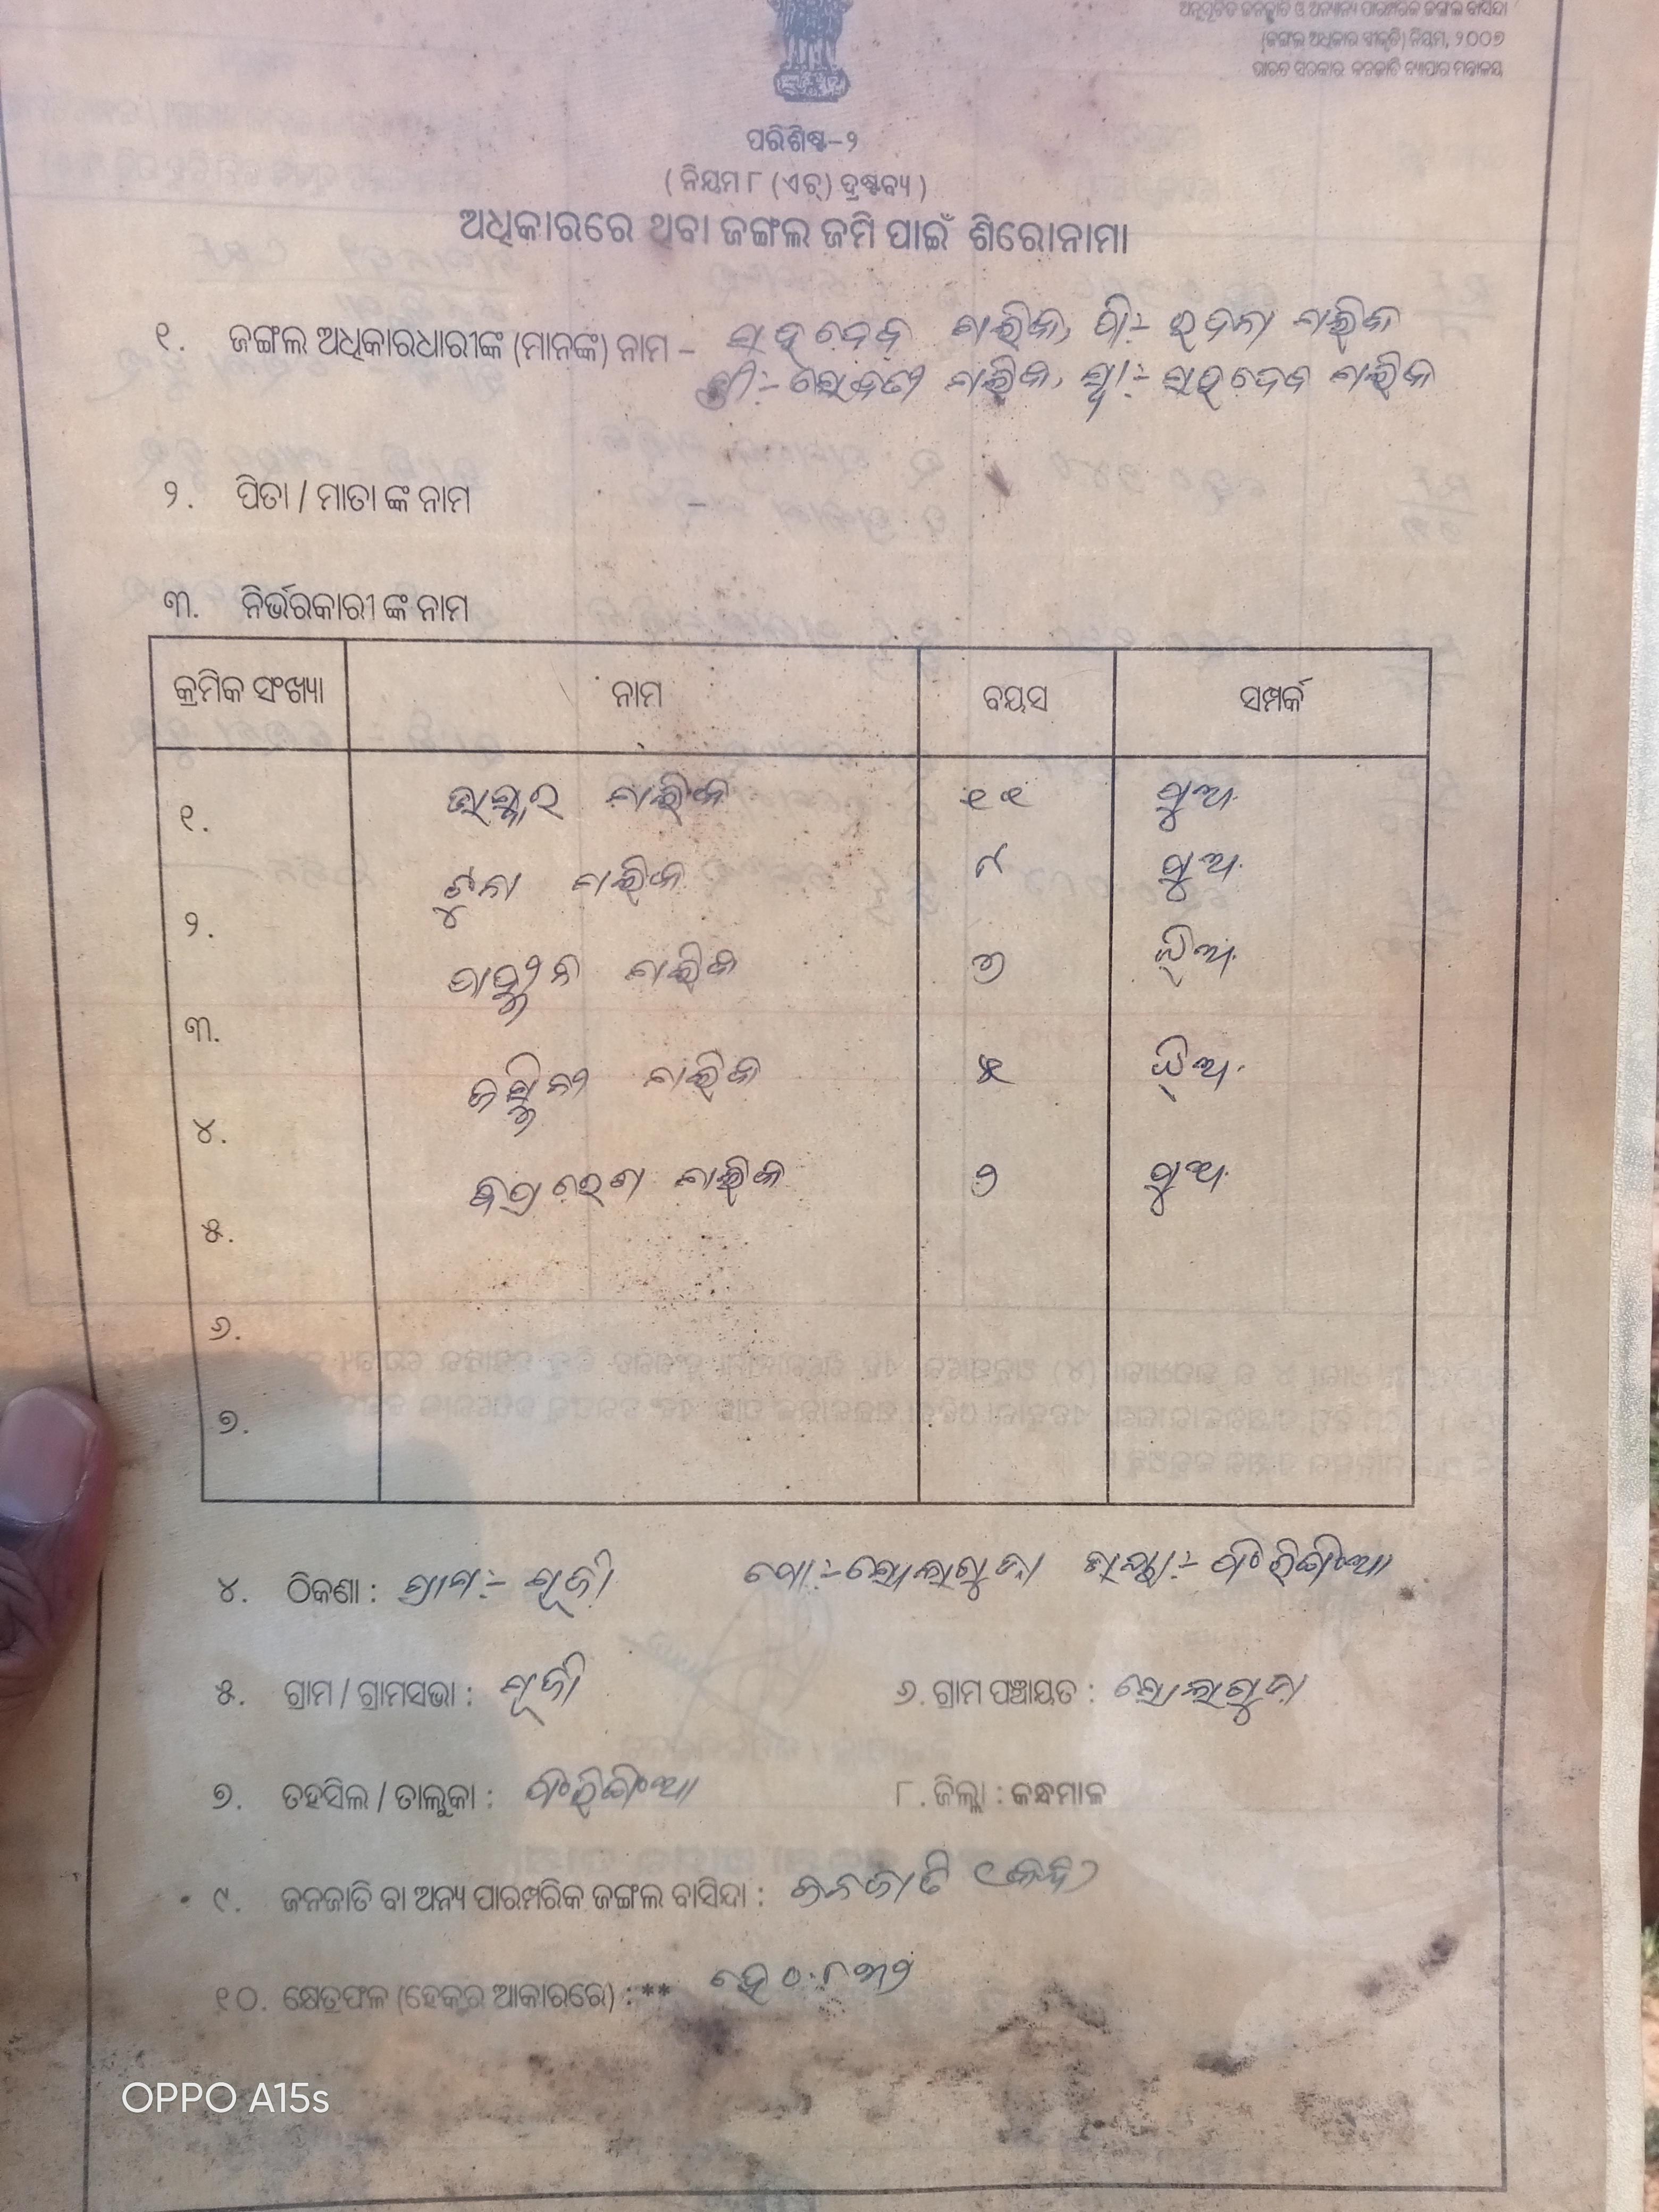 ଅନୁସୂଚିତ ଜନଜାତି ଓ ଅନ୍ୟାନ୍ୟ ପାରମ୍ପରିକ ଜଙ୍ଗଲ ବାସିନ୍ଦା
(ଜଙ୍ଗଲ ଅଧିକାର ସ୍ୱୀକୃତି) ନିୟମ, ୨୦୦୭
ଭାରତ ସରକାର ଜନଜାତି ବ୍ୟାପାର ମନ୍ତ୍ରାଳୟ
ପରିଶିଷ୍ଟ-୨
( ନିୟମ ୮ (ଏଚ୍) ଦ୍ରଷ୍ଟବ୍ୟ )
ଅଧିକାରରେ ଥିବା ଜଙ୍ଗଲ ଜମି ପାଇଁ ଶିରୋନାମା
୧. ଜଙ୍ଗଲ ଅଧିକାରଧାରୀଙ୍କ (ମାନଙ୍କ) ନାମ - ସହଦେବ ମଲିକ, ପି:-
ମଲିକ, ସ୍ୱା:- ସହଦେବ ମଲିକ
୨. ପିତା / ମାତା ଙ୍କ ନାମ -
୩. ନିର୍ଭରକାରୀ ଙ୍କ ନାମ
କ୍ରମିକ ସଂଖ୍ୟା ନାମ ବୟସ ସମ୍ପର୍କ
୧. ଭାସ୍କର ମଲିକ ୧୧ ପୁଅ
୨. ଟୁନା ମଲିକ ୯ ପୁଅ
୩. ମଲିକ ଝିଅ
୪. ମଲିକ ୫ ଝିଅ
୫. ମଲିକ ୨ ପୁଅ
୬.
୭.
୪. ଠିକଣା : ଗ୍ରାମ:- ପୋ:- ଥାନା:- ଫିରିଙ୍ଗିଆ
୫. ଗ୍ରାମ / ଗ୍ରାମସଭା : ୬. ଗ୍ରାମ ପଞ୍ଚାୟତ :
୭. ତହସିଲ / ତାଲୁକା : ଫିରିଙ୍ଗିଆ ୮. ଜିଲ୍ଲା : କନ୍ଧମାଳ
୯. ଜନଜାତି ବା ଅନ୍ୟ ପାରମ୍ପରିକ ଜଙ୍ଗଲ ବାସିନ୍ଦା : ଜନଜାତି (କନ୍ଧ)
୧୦. କ୍ଷେତ୍ରଫଳ (ହେକ୍ଟର ଆକାରରେ) : ** ହେ ୦.୮୩୨
OPPO A15s